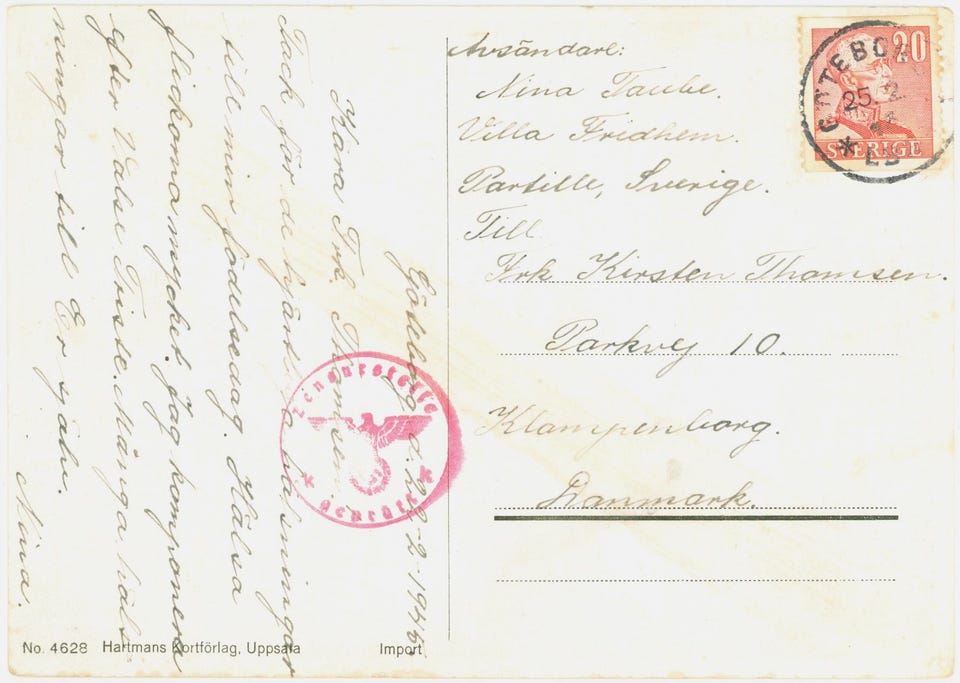 Avsändare:
Nina Taube.
Villa Fridhem.
Partille, Sverige.
Till
Frk. Kirsten Thomsen.
Parkvej 10.
Klampenborg.
Danmark.
20
SVERIGE
GÖTEBORG
25 2
Göteborg d.
Kära Frk. Thomsen.
Tack för de hjärtliga hälsningar
till min födelsedag. Hälsa
flickorna mycket. Jag komponera
efter Valse Triste. Många häls
ningar til Er själv.
Nina.
Zensurstelle
Geprüft
No. 4628 Hartmans Kortförlag, Uppsala Import